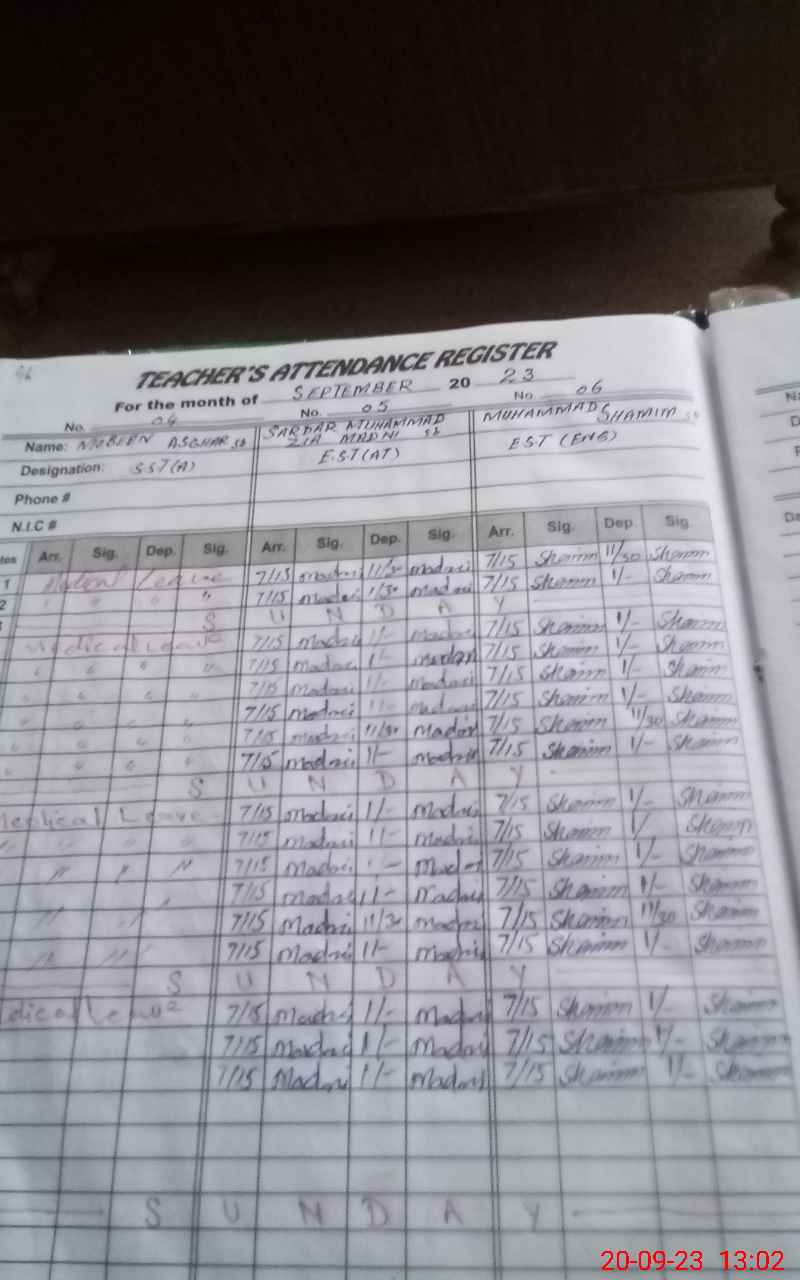 TEACHER'S ATTENDANCE REGISTER
For the month of SEPTEMBER 20 23
No. 04 No. 05 No. 06
Name: MOBEEN ASGHAR sb SARDAR MUHAMMAD ZIA MADNI sb MUHAMMAD SHAMIM sb
Designation: S.S.T(A) E.S.T(AT) E.S.T (ENG)
Phone #
N.I.C #
Arr. Sig. Dep. Sig. Arr. Sig. Dep. Sig. Arr. Sig. Dep. Sig.
1 Leave 7/15 madni 11/30 madni 7/15 Shamim 11/30 Shamim
2 " " " " 7/15 madni 11/30 madni 7/15 Shamim 1/- Shamim
S U N D A Y
Medical Leave 7/15 madni 1/- madni 7/15 Shamim 1/- Shamim
" " " " 7/15 madni 1/- madni 7/15 Shamim 1/- Shamim
" " " " 7/15 madni 1/- madni 7/15 Shamim 1/- Shamim
" " " " 7/15 madni 1/- madni 7/15 Shamim 1/- Shamim
" " " " 7/15 madni 11/30 madni 7/15 Shamim 11/30 Shamim
" " " " 7/15 madni 1/- madni 7/15 Shamim 1/- Shamim
S U N D A Y
Medical Leave 7/15 madni 1/- Madni 7/15 Shamim 1/- Shamim
" " " " 7/15 Madni 1/- Madni 7/15 Shamim 1/ Shamim
" " " 7/15 Madni - Madni 7/15 Shamim 1/- Shamim
" 7/15 Madni 1/- Madni 7/15 Shamim 1/- Shamim
" " 7/15 Madni 11/30 madni 7/15 Shamim 11/30 Shamim
" " 7/15 Madni 1/- madni 7/15 Shamim 1/- Shamim
S U N D A Y
dical Leave 7/15 Madni 1/- Madni 7/15 Shamim 1/- Shamim
7/15 Madni 1/- Madni 7/15 Shamim 1/- Shamim
7/15 Madni 1/- Madni 7/15 Shamim 1/- Shamim
S U N D A Y
20-09-23 13:02